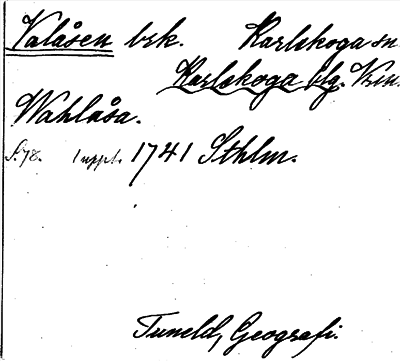 Valåsen brk. Karlskoga sn
Karlskoga blg. Vrm.
Wahlåsa.
S. 78. 1 uppl. 1741 Sthlm.
Tuneld, Geografi.